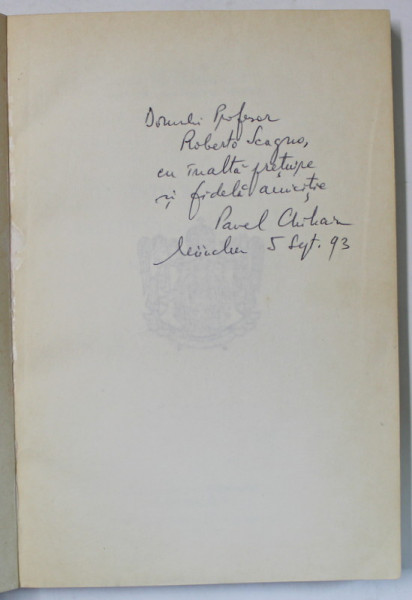 Domnului Profesor
Roberto Scagno,
cu înaltă prețuire
și fidelă amiciție
Pavel Chihaia
München 5 Sept. 93